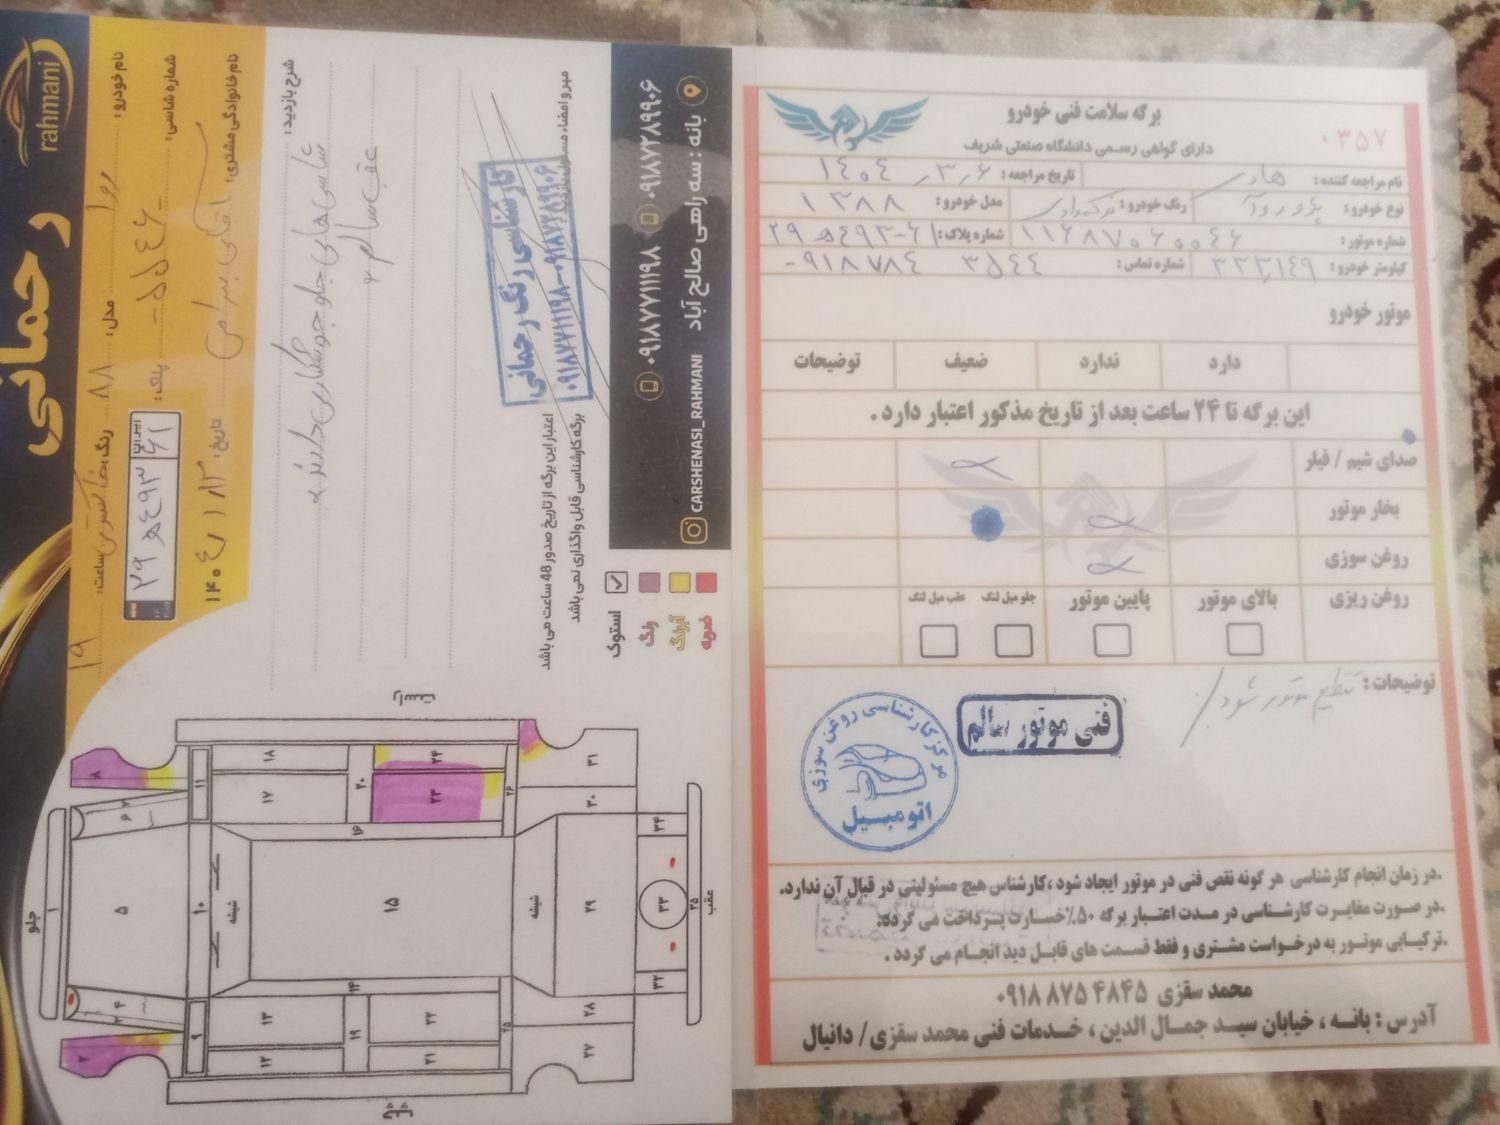 برگه سلامت فنی خودرو
۰۳۵۷
دارای گواهی رسمی دانشگاه صنعتی شریف
نام مراجعه کننده : هادی تاریخ مراجعه : ۱۴۰۴٫۳٫۶
نوع خودرو : پژو روآ رنگ خودرو : نوکمدادی مدل خودرو : ۱۳۸۸
شماره موتور : ۱۱۶۸۷۰۶۰۰۴۶ شماره پلاک : ۲۹ ه ۴۹۳-۶۱
کیلومتر خودرو : ۳۲۲٫۱۴۹ شماره تماس : ۰۹۱۸۷۸۴ ۳۵۴۴
موتور خودرو
دارد ندارد ضعیف توضیحات
این برگه تا ۲۴ ساعت بعد از تاریخ مذکور اعتبار دارد .
صدای شیم / فیلر
بخار موتور
روغن سوزی
روغن ریزی بالای موتور پایین موتور جلو میل لنگ عقب میل لنگ
توضیحات : تنظیم موتور شود
فنی موتور سالم
مرکز کارشناسی روغن سوزی
اتومبیل
.در زمان انجام کارشناسی هر گونه نقص فنی در موتور ایجاد شود ،کارشناس هیچ مسئولیتی در قبال آن ندارد.
.در صورت مغایرت کارشناسی در مدت اعتبار برگه ۵۰٪خسارت پرداخت می گردد.
.ترکیابی موتور به درخواست مشتری و فقط قسمت های قابل دید انجام می گردد .
محمد سقزی ۴۸۴۵ ۸۷۵ ۰۹۱۸
آدرس : بانه ، خیابان سید جمال الدین ، خدمات فنی محمد سقزی / دانیال
rahmani
رحمانی
نام خودرو : روآ مدل : ۸۸ رنگ : خاکستری ساعت : ۱۹
شماره شاسی : ۵۵۴۶ پلاک : ۲۹ ه ۴۹۳ ایران ۶۱
نام خانوادگی مشتری : آقای بهرامی تاریخ : ۱۴۰۴/
شرح بازدید :
شاسی های جلو جوشکاری دارند
عقب سالم
مهر و امضاء مسئول بازدید
کارشناسی رنگ رحمانی
۰۹۱۸۷۷۱۱۱۹۸-۰۹۱۸۷۲۸۹۹۰۶
اعتبار این برگه از تاریخ صدور 48 ساعت می باشد
برگه کارشناسی قابل واگذاری نمی باشد
بانه : سه راهی صالح آباد
۰۹۱۸۷۷۱۱۱۹۸ ۰۹۱۸۷۲۸۹۹۰۶
CARSHENASI_RAHMANI
استوک
رنگ
آبرنگ
ضربه
راست
۸ ۱۱ ۱۸ ۲۴ ۳۱
۷ ۶ ۱۷ ۲۰ ۲۳ ۲۶ ۳۰
۱۶ ۳۴
جلو ۱ ۵ ۱۰ شیشه ۱۵ شیشه ۲۹ ۳۳ ۳۵ عقب
۱۴ ۳۲
۴ ۳ ۹ ۱۳ ۲۲ ۲۵ ۲۸
۲ ۱۲ ۱۹ ۲۱ ۲۷
چپ